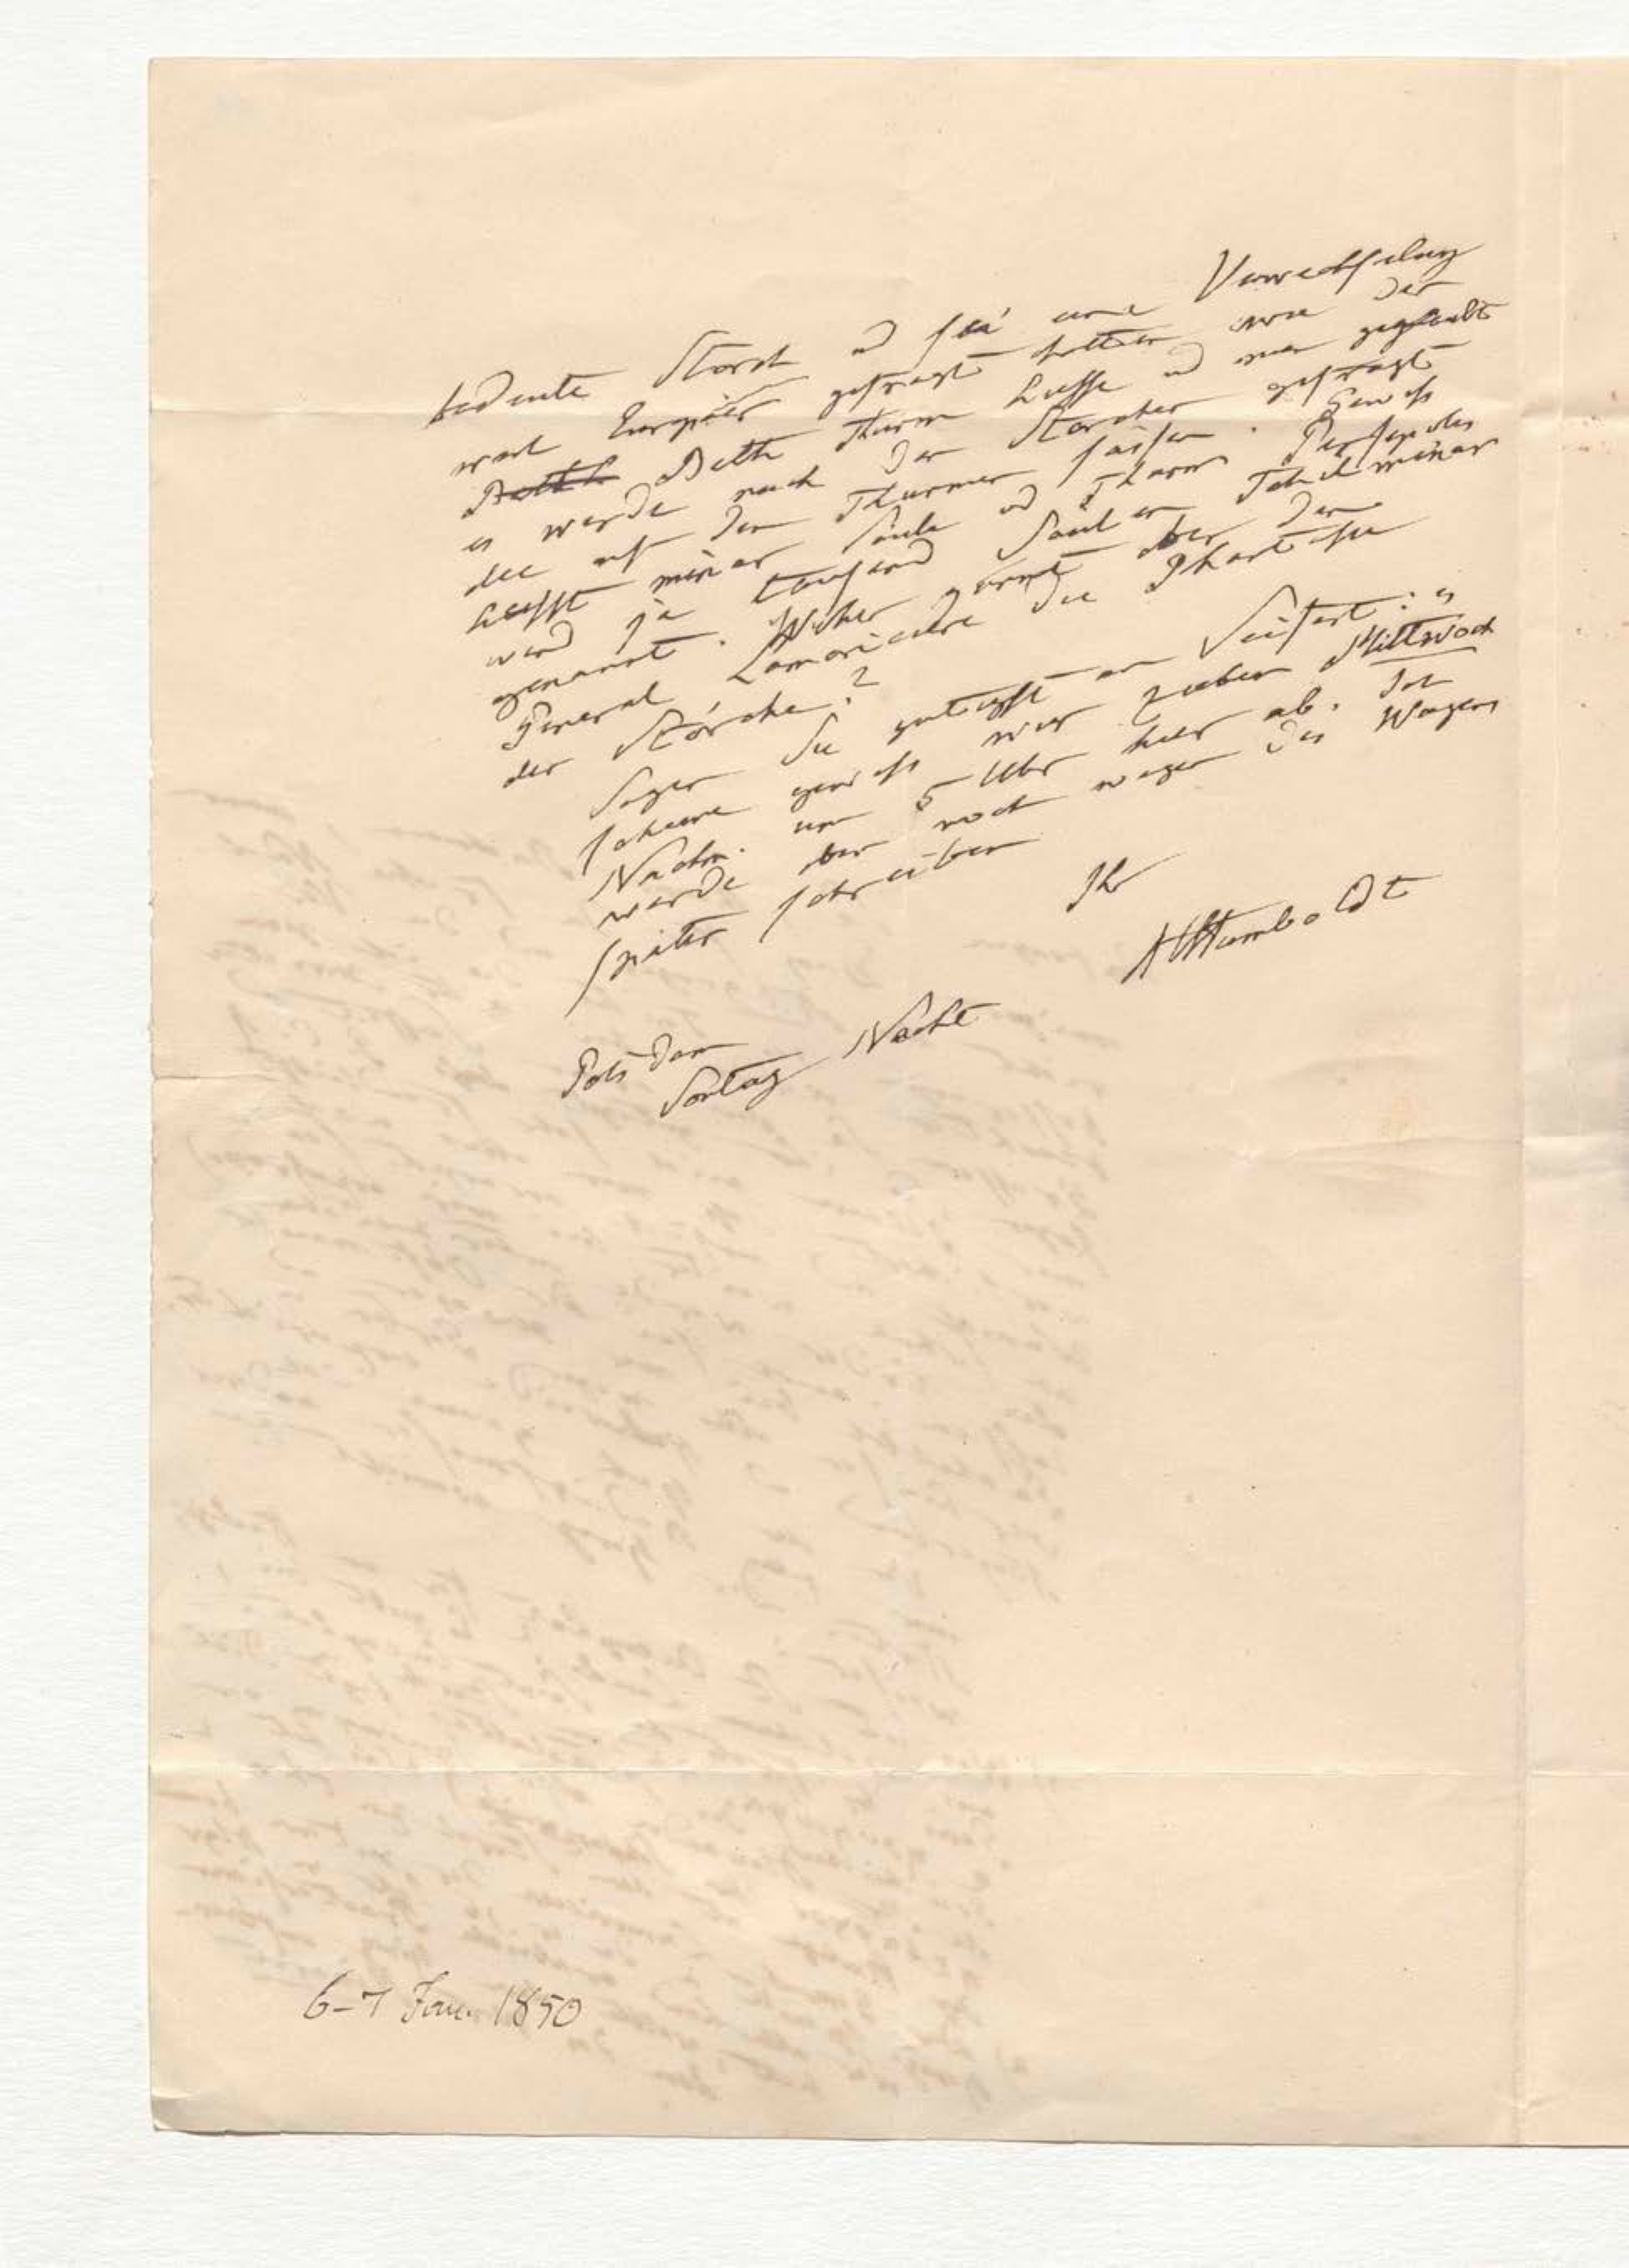 bedeute Storch u sei eine Verwechselung
weil Europäer gefragt hätten wie der
Beth Thurm heisse u man geglaubt
es werde nach den Storchen gefragt
die auf den Thürmen säßen. Gewiss
heisst minar Säule und Thurm Persepolis
wird ja tausend Säulen Tchilminar
genannt. Woher nimt aber der
General Lamoriciere die
der Störche?
Sagen Sie gütigst an Seifert: es
scheine gewiss wir gehen Mittwoch
Nachm. um 5 Uhr hier ab. Ich
werde aber noch wegen des Wagens
später schreiben
Ihr
AvHumboldt
Potsdam
Sontag Nacht
6-7 Jan. 1850